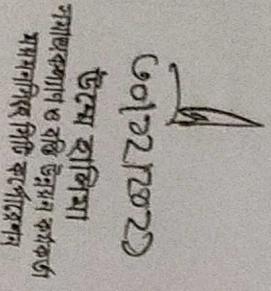 উম্মে হালিমা
সমাজকল্যাণ ও বস্তি উন্নয়ন কর্মকর্তা
ময়মনসিংহ সিটি কর্পোরেশন